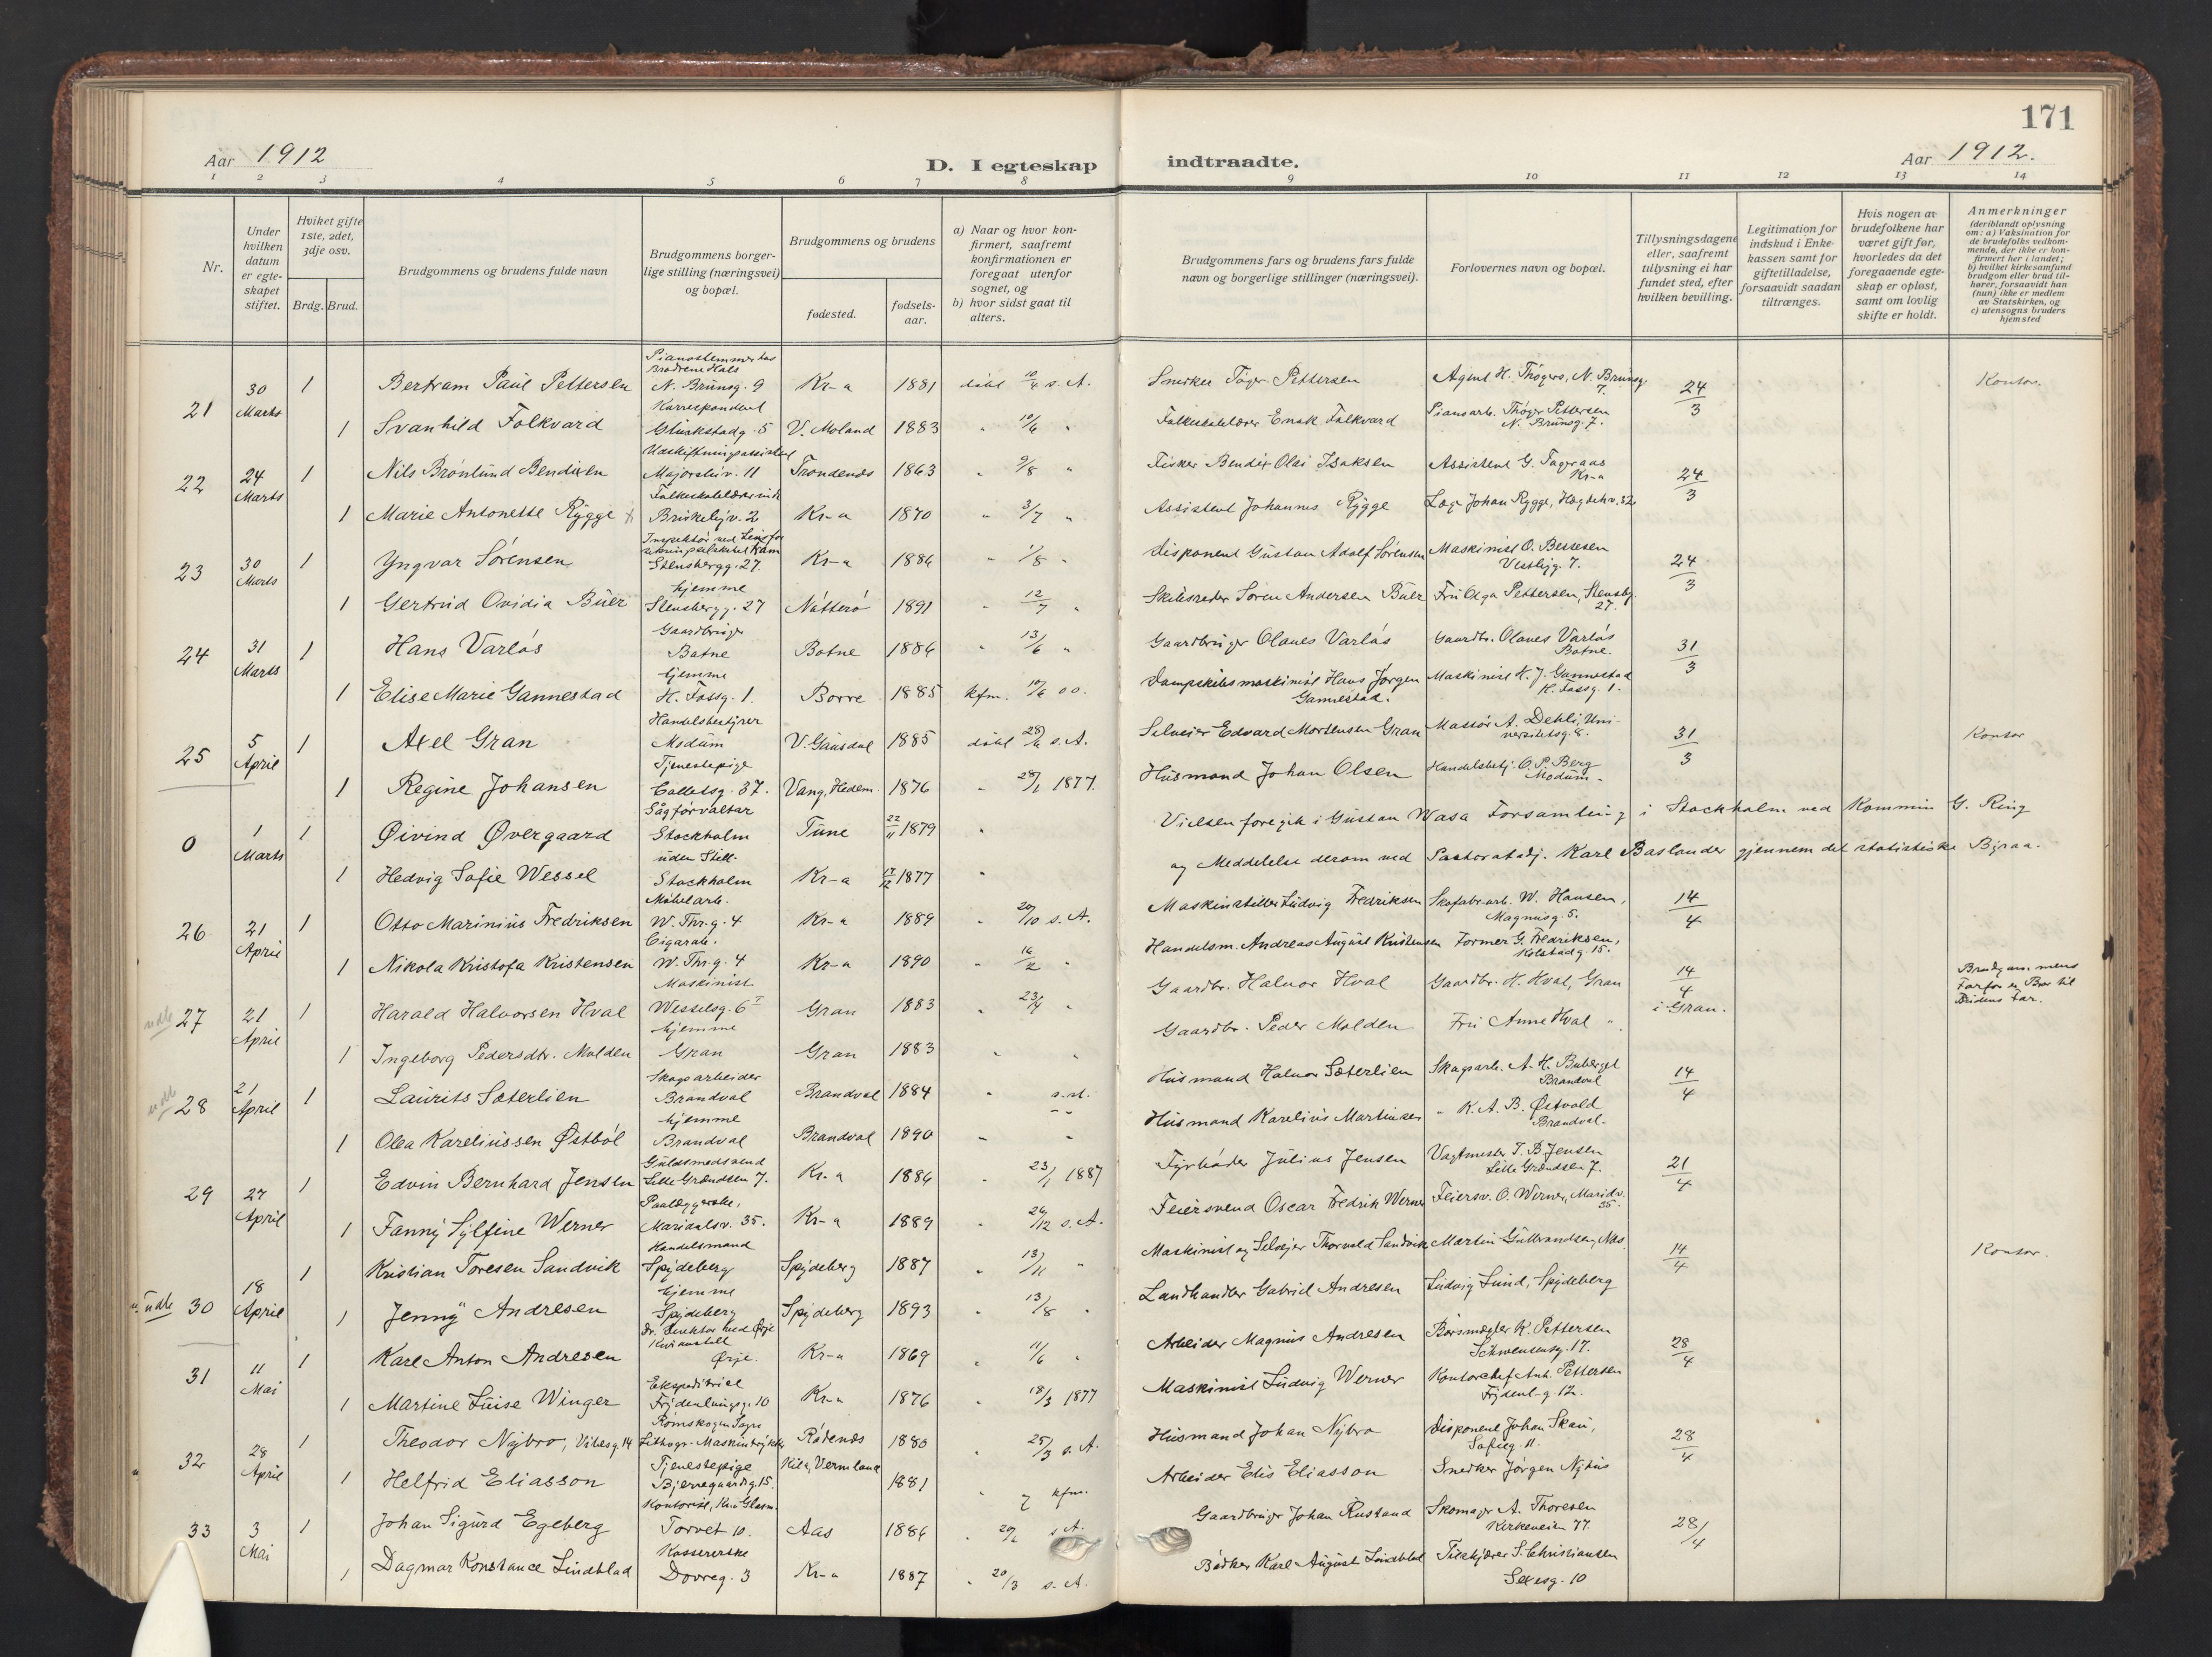 171
Aar 1912
D. I egteskap indtraadte.
Aar 1912.
1 2 3 4 5 6 7 8 9 10 11 12 13 14
Nr.
Under hvilken datum er egteskapet stiftet.
Hviket gifte 1ste, 2det, 3dje osv.
Brdg. Brud.
Brudgommens og brudens fulde navn
Brudgommens borgerlige stilling (næringsvei) og bopæl.
Brudgommens og brudens
fødested.
fødselsaar.
a) Naar og hvor konfirmert, saafremt konfirmationen er foregaat utenfor sognet, og
b) hvor sidst gaat til alters.
Brudgommens fars og brudens fars fulde navn og borgerlige stillinger (næringsvei).
Forlovernes navn og bopæl.
Tillysningsdagene eller, saafremt tillysning ei har fundet sted, efter hvilken bevilling.
Legitimation for indskud i Enkekassen samt for giftetilladelse, forsaavidt saadan tiltrænges.
Hvis nogen av brudefolkene har været gift før, hvorledes da det foregaaende egteskap er opløst, samt om lovlig skifte er holdt.
Anmerkninger
(deriblandt oplysning om: a) Vaksination for de brudefolks vedkommende, der ikke er konfirmert her i landet;
b) hvilket kirkesamfund brudgom eller brud tilhører, forsaavidt han (hun) ikke er medlem av Statskirken, og
c) utensogns bruders hjemsted
21 30 Marts 1 Bertram Paul Pettersen Pianostemmer hos Brødrene Hals N. Brunsg. 9 Kr-a 1881 døbt 10/4 s. A. Snedker Tøger Pettersen Agent H. Thøgers, N. Brunsg 7. 24/3 Kontor.
1 Svanhild Folkvard Korrespondent Glückstadg. 5 V. Moland 1883 " 10/6 " Folkeskolelærer Enok Folkvard Pianoarb. Thøger Pettersen N. Brunsg. 7.
22 24 Marts 1 Nils Brønlund Bendixen Udskiftningsassistent Majorstuv. 11 Trondenæs 1863 " 9/8 " Fisker Bendix Olai Isaksen Assistent G. Tageraas Kr-a 24/3
1 Marie Antonette Rygge Folkeskolelærerinde Briskebyv. 2 Kr-a 1870 " 3/7 " Assistent Johannes Rygge Læge Johan Rygge, Hægdehv. 32
23 30 Marts 1 Yngvar Sørensen Inspektør ved Livsforsikringsselskabet Ram Stensbergg. 27. Kr-a 1886 " 1/8 " Disponent Gustav Adolf Sørensen Maskinist O. Bessesen Vestbyg. 7. 24/3
1 Gertrud Ovidia Buer hjemme Stensbergg. 27 Nøtterø 1891 " 12/7 " Skibsreder Søren Andersen Buer Fru Olga Pettersen, Stensbg. 27.
24 31 Marts 1 Hans Varløs Gaardbruger Botne Botne 1886 " 13/6 " Gaardbruger Olaves Varløs Gaardbr. Olaves Varløs Botne. 31/3
1 Elise Marie Gannestad hjemme H. Fossg. 1. Borre 1885 kfm. 10/6 00. Dampskibsmaskinist Hans Jørgen Gannestad. Maskinist H. J. Gannestad H. Fossg. 1.
25 5 April 1 Axel Gran Handelsbestyrer Modum V. Gausdal 1885 døbt s. A. Selveier Edvard Mortensen Gran Massør A. Dehli, Universitetsg. 8. 31/3 Kontor
1 Regine Johansen Tjenestepige Colletsg. 37. Vang, Hedem. 1876 " 28/1 1877. Husmand Johan Olsen Handelsbetj. O. P. Berg Modum.
0 1 Marts 1 Øivind Øvergaard Sågförvaltar Stockholm Tune 22/11 1879 " Vielsen foregik i Gustav Wasa Forsamling i Stockholm ved Kommin. G. Ring
1 Hedvig Sofie Wessel uden Still. Stockholm Kr-a 17/12 1877 " og Meddelelse derom ved Pastoratadj. Karl Baslander gjennem det statistiske Byraa.
26 21 April 1 Otto Marinius Fredriksen Møbelarb. W. Thr. g. 4 Kr-a 1889 " 20/10 s. A. Maskinstiller Ludvig Fredriksen Skofabr.arb. W. Hansen, Magnusg. 5. 14/4
1 Nikola Kristofa Kristensen Cigararb. W. Thr. g. 4 Kr-a 1890 " 16/2 " Handelsm. Andreas August Kristensen Former G. Fredriksen, Kolstadg. 15.
udb 27 21 April 1 Harald Halvorsen Hval Maskinist Wesselsg. 6 I Gran 1883 23/4 " Gaardbr. Halvor Hval Gaardbr. H. Hval, Gran 14/4 i Gran. Brudgommens Farfar er Bror til Brudens Far.
1 Ingeborg Pedersdtr. Molden hjemme Gran Gran 1883 " " Gaardbr. Peder Molden Fru Anne Hval "
udb 28 21 April 1 Laurits Sæterlien Skogsarbeider Brandval Brandval 1884 " s. st. Husmand Halvor Sæterlien Skogsarb. A. H. Buberget Brandval 14/4
1 Olea Kareliussen Østbøl hjemme Brandval Brandval 1890 " " Husmand Karelius Martinsen " K. A. B. Østvold Brandval.
29 27 April 1 Edvin Bernhard Jensen Guldsmedsvend Lille Grændsen 7. Kr-a 1886 " 23/1 1887 Fyrbøder Julius Jensen Vagtmester T. B. Jensen Lille Grændsen 7. 21/4
1 Fanny Sylfine Werner Paalæggerske, Maridalsv. 35. Kr-a 1889 " 26/12 s. A. Feiersvend Oscar Fredrik Werner Feiersv. O. Werner, Maridv. 35.
udb 30 18 April 1 Kristian Toresen Sandvik Handelsmand Spydeberg Spydeberg 1887 " 13/11 " Maskinist og Selvejer Thorvald Sandvik Martin Gulbrandsen, Nas. 14/4 Kontor.
1 Jenny Andresen hjemme Spydeberg Spydeberg 1893 " 13/8 " Landhandler Gabriel Andresen Ludvig Lund, Spydeberg
31 11 Mai 1 Karl Anton Andresen Dr. Direktør ved Ørje Kuranstalt Ørje. Kr-a 1869 " 11/6 " Arbeider Magnus Andresen Børsmægler K. Pettersen Schwensensg. 17. 28/4
1 Martine Luise Winger Ekspeditrice Frydenlundsg. 10 Kr-a 1876 " 18/3 1877 Maskinist Ludvig Werner Kontorchef Ant. Pettersen Frydenl-g. 12.
32 28 April 1 Theodor Nybro, Vibesg. 14 Rømskogen Sogn Lithogr. Maskintrykker Rødenæs 1880 " 25/3 s. A. Husmand Johan Nybro Disponent Johan Skau, Sofieg. 11. 28/4
1 Helfrid Eliasson Tjenestepige Bjerregaardsg. 15. Kila, Vermland 1881 " kfm. Arbeider Elis Eliasson Snedker Jørgen Nyhus
33 3 Mai 1 Johan Sigurd Egeberg Kontorist, Kr.a Glasm. Torvet 10. Aas 1886 s. A. Gaardbruger Johan Rustand Skomager A. Thoresen Kirkeveien 77. 28/4
1 Dagmar Konstance Lindblad Kassererske Dovreg. 3 Kr-a 1887 " 20/3 s. A. Bødker Karl August Lindblad Tilskjærer S. Christiansen Sexesg. 10